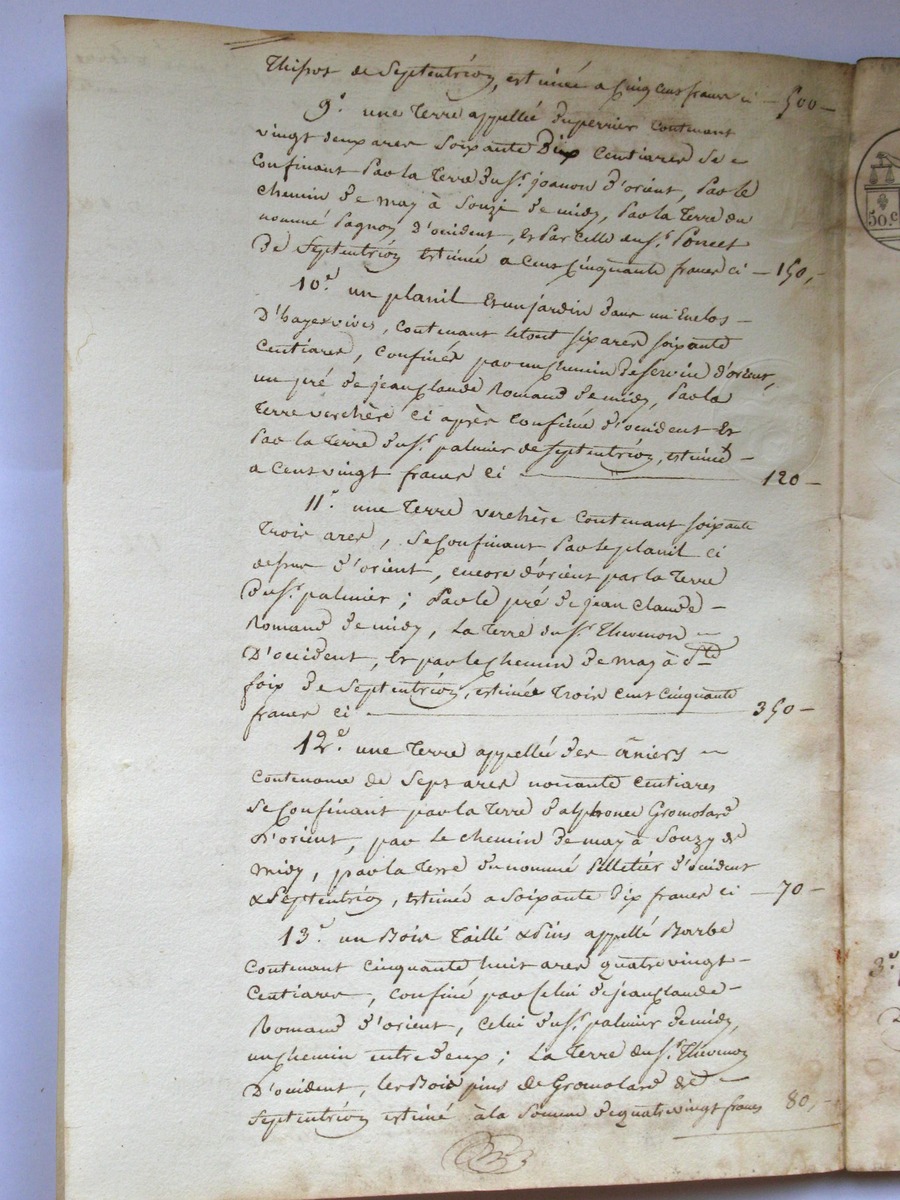 de Septentrion, estimée a Cinq cens francs ci — 500 —
9.e une Terre appellée Duperrier Contenant
vingt deux ares Soixante Dix Centiares Se
Confinant Par la Terre du Sr. joanon D'orient, Par le
Chemin De may à Souzi De midy, Par la Terre du
nommé Pagnon D'occident, et Par Celle du Sr. Poncet
De Septentrion Estimée a Cent Cinquante francs ci — 150,-
10.e un planil Et un jardin Dans un Enclos —
D'hayes vives, Contenant le tout six ares soixante
Centiares, Confinés par un Chemin De Service D'orient,
un pré De jean Claude Romand De midy, Par la
Terre verchère Ci après Confiné D'occident Et
Par la Terre du Sr. palmier de Septentrion, estimés —
a Cent vingt francs ci — 120 —
11.e une Terre verchère Contenant soixante
Trois ares, Se Confinant Par le planil ci
dessus D'orient, encore d'orient par la Terre
Du Sr. palmier; Par le pré De jean Claude —
Romand De midy, La Terre du Sr. Thevenon —
D'occident, Et par le Chemin De may à Ste
foix De Septentrion, estimée Trois Cens Cinquante
francs ci — 350 —
12.e une Terre appellée Des —
Contenance de Sept ares nonante Centiares
Se Confinant par la Terre D'alphonse Gromolard
D'orient, par Le chemin De may à Souzy De
midy, par la Terre du nommé Pelletier D'occident
& Septentrion, Estimée a Soixante Dix francs ci — 70 —
13.e un Bois Taillé & Pins appellé Barbe
Contenant Cinquante huit ares quatre vingt —
Centiares, Confiné par Celui De jean Claude —
Romand D'orient, Celui du Sr. palmier De midy,
un Chemin entre Deux; La Terre du Sr. Thevenon
D'occident, Les Bois pins de Gromolard De —
Septentrion estimé à la Somme De quatre vingt francs 80,-
50.c
3.e